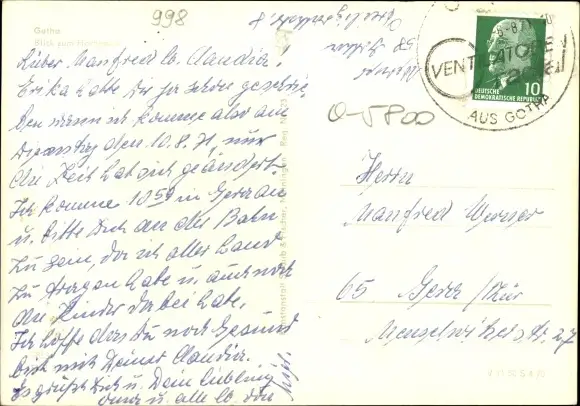 998
Gotha
Lieber Manfred lb. Claudia!
Erika hatte Dir ja schon geschrie-
ben wann ich komme also am
Dienstag den 10.8.71, nur
die Zeit hat sich geändert.
Ich komme 1059 in Gera an
u. bitte Dich an der Bahn
zu sein, da ich aller hand
zu tragen habe u. auch noch
die Kinder dabei habe.
Ich hoffe dass Du noch Gesund
bist mit Deiner Claudia.
Es grüßt Dich u. Dein Liebling
u. alle lb.
58
VENTILATOREN
AUS GOTHA
10
DEUTSCHE
DEMOKRATISCHE REPUBLIK
O-5800
Herrn
Manfred Werner
65 Gera/Thür
Menselwitzerstr. 27